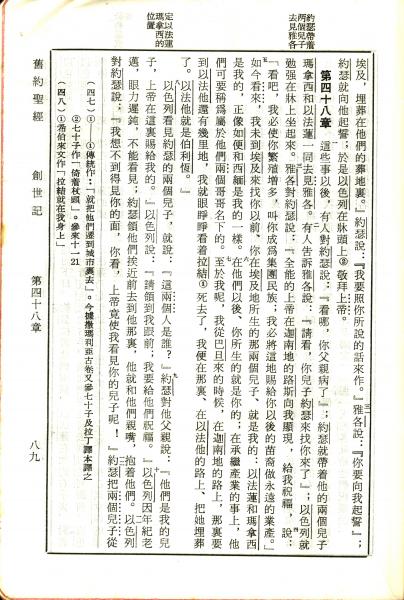 約瑟帶着
兩個兒子
去見雅各
定以法蓮
瑪拿西的
位置
埃及,埋葬在他們的葬地裏。』約瑟說:『我要照你所說的話來作。』雅各說:『你要向我起誓』;
約瑟就向他起誓;於是以色列在牀頭上②敬拜上帝。
第四十八章 這些事以後,有人對約瑟說:『看哪,你父親病了』;約瑟就帶着他的兩個兒子
瑪拿西和以法蓮一同去見雅各。有人告訴雅各說:『請看,你兒子約瑟來找你來了』;以色列就
勉强在牀上坐起來。雅各對約瑟說:『全能的上帝在迦南地的路斯向我顯現,給我祝福,說:
「看吧,我必使你繁殖增多,叫你成爲集團民族;我必將這地賜給你以後的苗裔做永遠的業產。」
如今看來,我未到埃及來找你以前、你在埃及地所生的那兩個兒子、就是我的:以法蓮和瑪拿西
是我的,正像如便和西緬是我的一樣。在他們以後、你所生的就是你的;在承繼產業的事上,他
們可要稱爲屬於他們兩個哥哥名下的。至於我呢,我從巴旦來的時候,在迦南地的路上,那裏要
到以法他還有幾里地,我就眼睜睜看着拉結①死去了,我便在那裏、在以法他的路上、把她埋葬
了。以法他就是伯利恆。』
以色列看見約瑟的兩個兒子,就說:『這兩個人是誰?』約瑟對他父親說:『他們是我的兒
子,上帝在這裏賜給我的。』以色列說:『請領到我跟前;我要給他們祝福。』以色列因年紀老
邁,眼力遲鈍,不能看見;約瑟領他們挨近前去到他那裏,他就和他們親嘴,抱着他們。以色列
對約瑟說:『我想不到得見你的面,你看,上帝竟使我看見你的兒子呢!』約瑟把兩個兒子從
(四七):① 傳統作:「就把他們遷到城市裏去」。今據撒瑪利亞古卷又參七十子及拉丁譯本譯之
②七十子作「倚着杖頭」。參來十一21
(四八):①希伯來文作「拉結就在我身上」
舊約聖經 創世記 第四十八章 八九